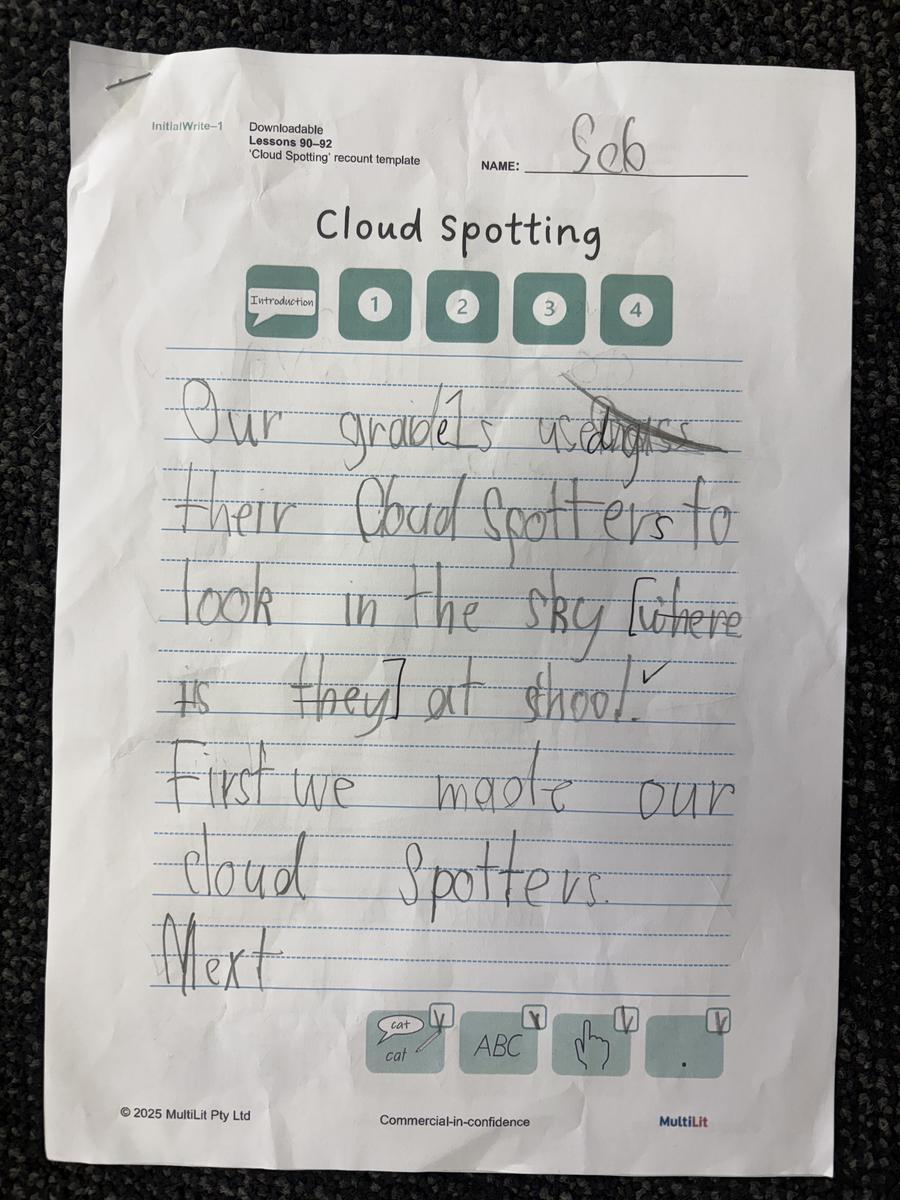 InitialWrite–1
Downloadable
Lessons 90–92
'Cloud Spotting' recount template
NAME: Seb
Cloud Spotting
Introduction 1 2 3 4
Our grade1s used
their Cloud Spotters to
look in the sky [where
is they] at shool.
First we made our
cloud Spotters.
Next
cat
cat
ABC
.
© 2025 MultiLit Pty Ltd
Commercial-in-confidence
MultiLit